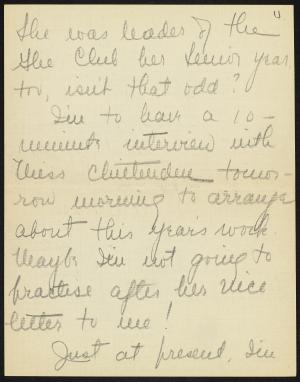 She was leader of the
Glee Club her Senior year,
too, isn't that odd?
I'm to have a 10-
minute interview with
Miss Chittenden tomor-
row morning to arrange
about this year's work.
Maybe I'm not going to
practise after her nice
letter to me!
Just at present, I'm